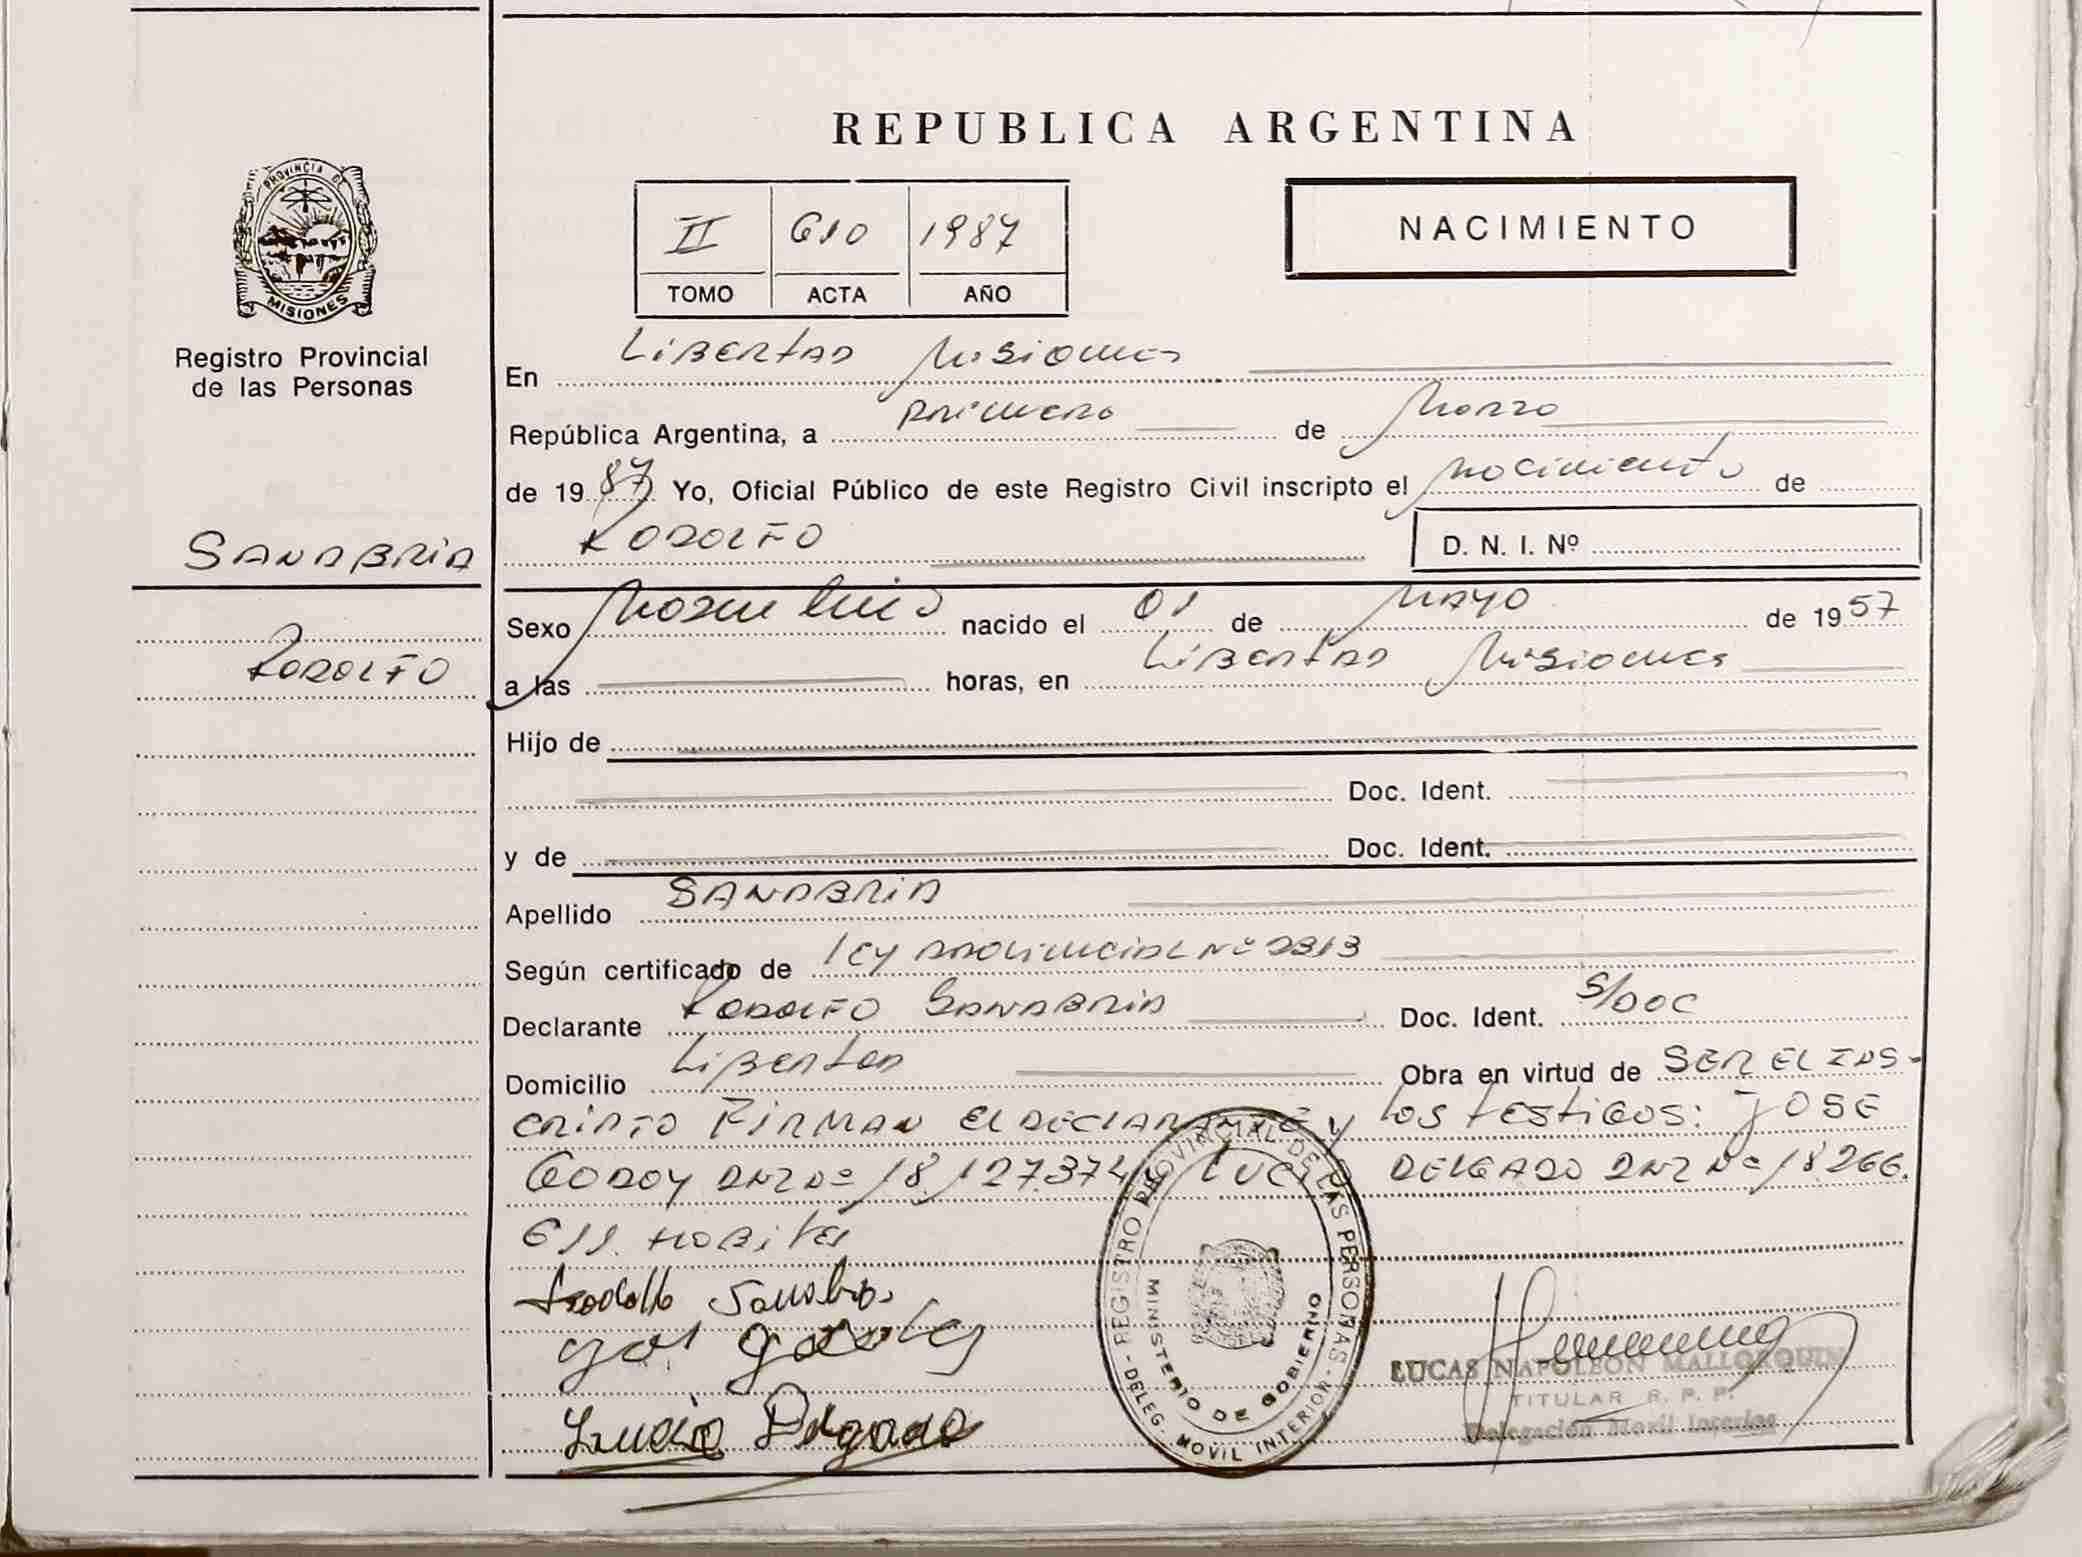 REPUBLICA ARGENTINA
PROVINCIA DE
MISIONES
Registro Provincial
de las Personas
II 610 1987
TOMO ACTA AÑO
NACIMIENTO
En Libertad Misiones
República Argentina, a primero de Marzo
de 1987 Yo, Oficial Público de este Registro Civil inscripto el nacimiento de
RODOLFO
D. N. I. Nº
SANABRIA
RODOLFO
Sexo Masculino nacido el 01 de MAYO de 1957
a las horas, en Libertad Misiones
Hijo de
Doc. Ident.
y de Doc. Ident.
Apellido SANABRIA
Según certificado de Ley Provincial Nº 2313
Declarante RODOLFO SANABRIA Doc. Ident. S/DOC
Domicilio Libertad Obra en virtud de SER EL INS-
CRIPTO FIRMAN El DECLARANTE y los testigos: JOSE
GODOY DNI Nº 18.127.374 LUCIO DELGADO DNI Nº 18.266.
611.
Rodolfo Sanabria
Lucio Delgado
REGISTRO PROVINCIAL DE LAS PERSONAS - DELEG. MOVIL INTERIOR -
MINISTERIO DE GOBIERNO
LUCAS NAPOLEON MALLORQUIN
TITULAR R. P. P.
Delegación Movil Interior